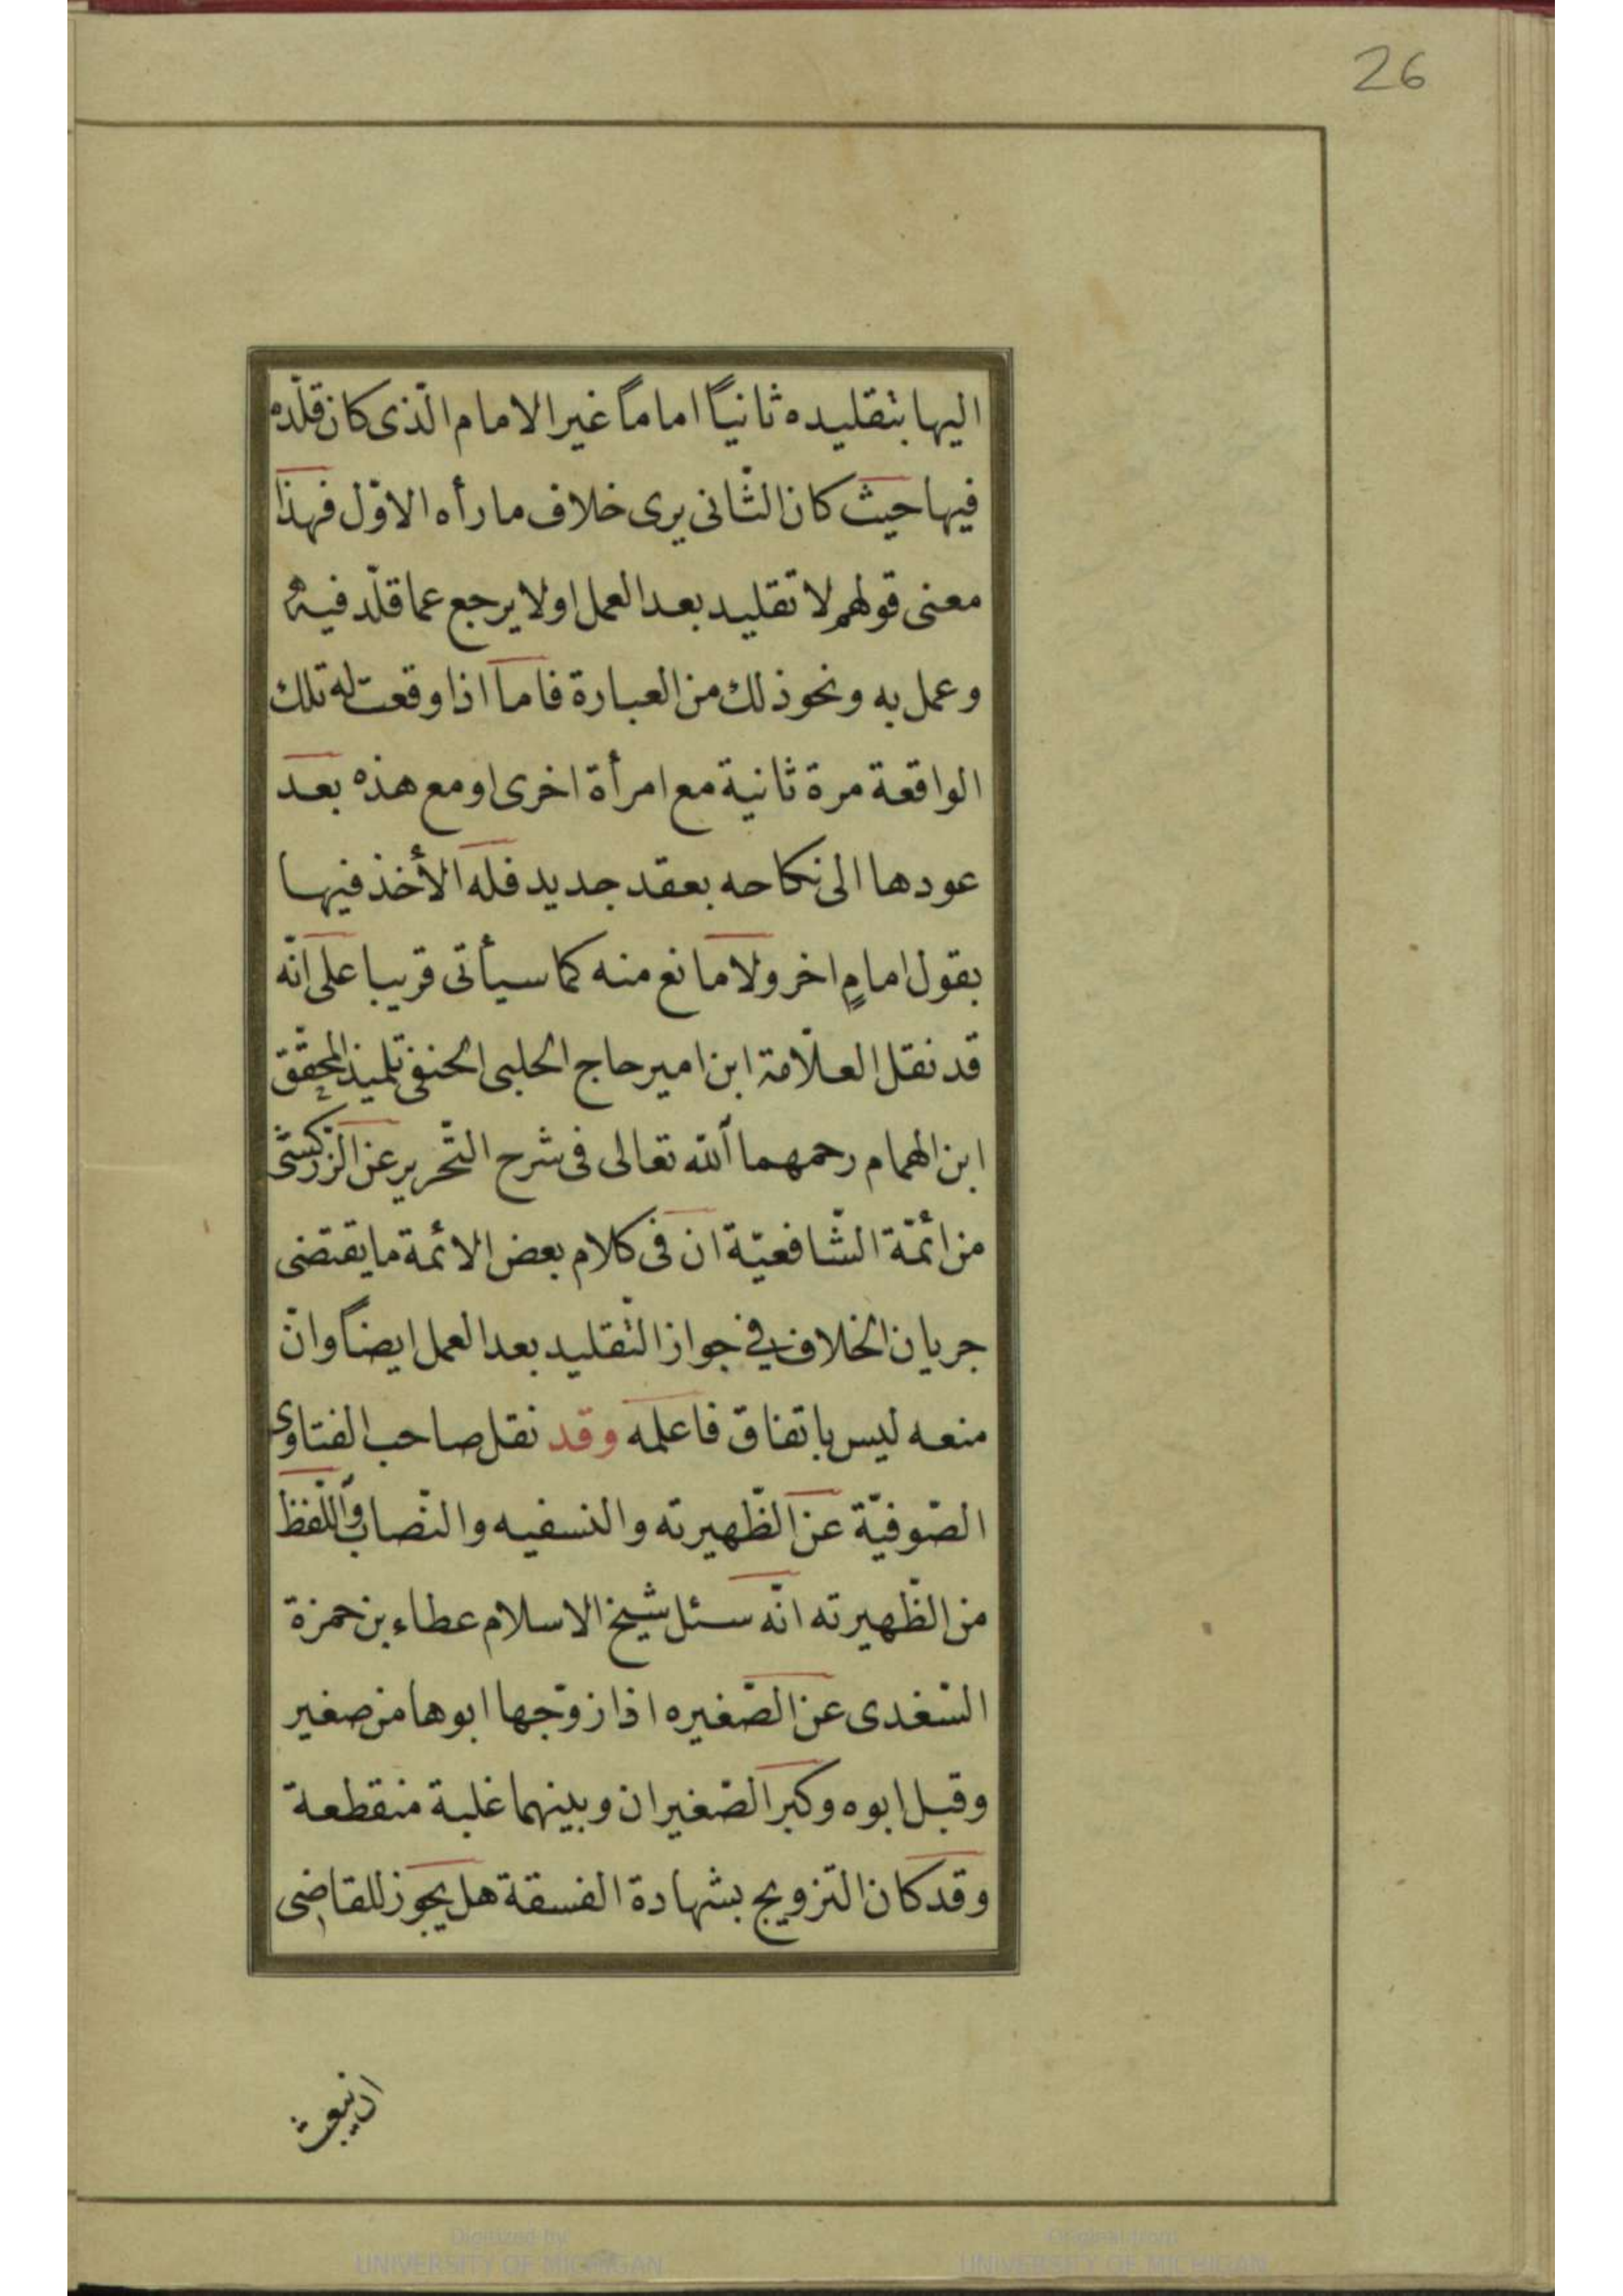 26
اليها بتقليده ثانياً اماماً غير الامام الّذى كان قلّده
فيها حيث كان الثّانى يرى خلاف ما رأه الاوّل فهذا
معنى قولهم لا تقليد بعد العمل او لا يرجع عما قلّد فيه
وعمل به ونحو ذلك من العبارة فاما اذا وقعت له تلك
الواقعة مرة ثانية مع امرأة اخرى او مع هذه بعد
عودها الى نكاحه بعقد جديد فله الأخذ فيها
بقول امامٍ اخر ولا مانع منه كما سيأتى قريبا على انّه
قد نقل العلّامة ابن امير حاج الحلبى الحنفى تلميذ المحقّق
ابن الهمام رحمهما الله تعالى فى شرح التّحرير عن الزّركشى
من ائمّة الشّافعيّة ان فى كلام بعض الائمة ما يقتضى
جريان الخلاف فى جواز التّقليد بعد العمل ايضاً وانّ
منعه ليس باتفاق فاعلمه وقد نقل صاحب الفتاوى
الصّوفيّة عن الظّهيرته والنسفيه والنّصاب واللّفظ
من الظّهيرته انّه سئل شيخ الاسلام عطاء بن حمزة
السّغدى عن الصّغيره اذا زوّجها ابوها من صغير
وقبل ابوه وكبر الصّغيران وبينهما غلبة منقطعة
وقد كان التزويج بشهادة الفسقة هل يجوز للقاضى
ان يبعث
Digitized by
UNIVERSITY OF MICHIGAN
Original from
UNIVERSITY OF MICHIGAN